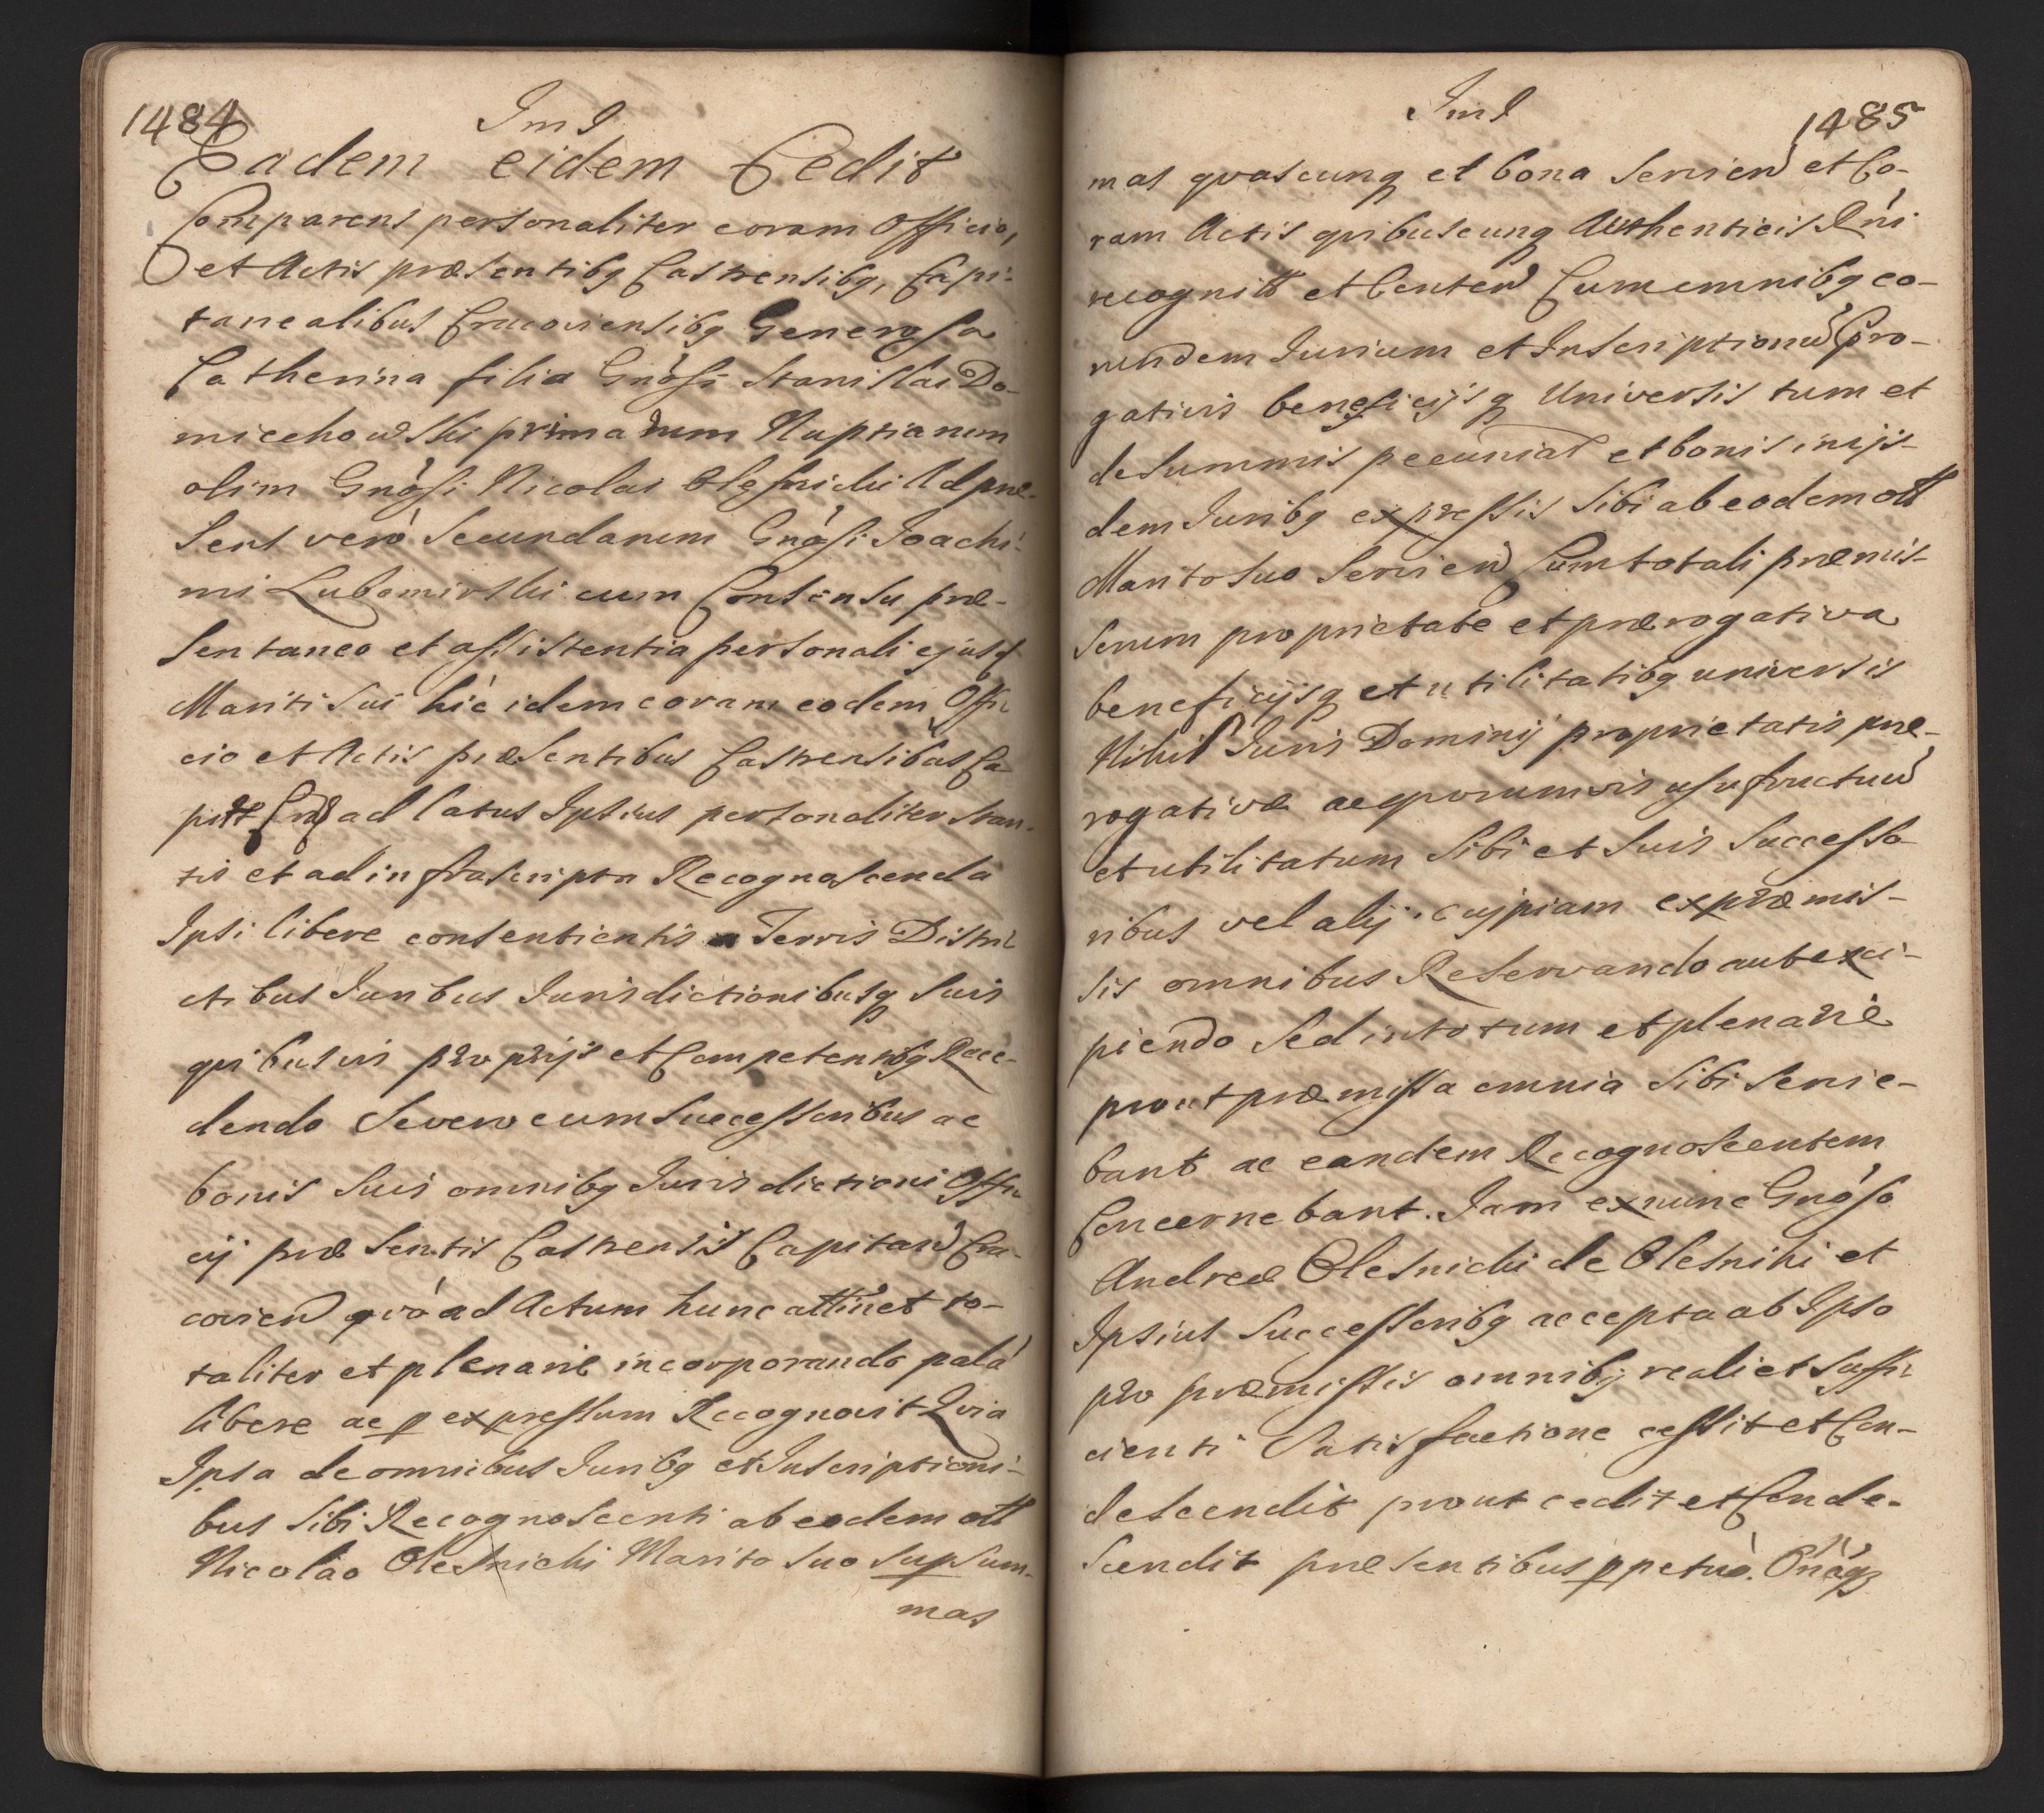 1484
Jmd
Eadem eidem Cedit
Comparens personaliter coram Officio,
et Actis præsentibq Castrensibq, Capi-
tanealibus Cracoviensibq Generosa
Catherina filia Gnósi Stanislai Do-
miechowski primarum Nuptiarum
olim Gnósi Nicolai Olesnicki Ad præ-
sens veró secundarum Gnósi Joachi-
mi Lubomirski cum Consensu præ-
sentaneo et assistentia personali ejusd
Mariti sui hic idem coram eodem Offi
cio et Actis præsentibus Castrensibus Ca
pitt Crac ad latus Ipsius personaliter stan-
tis et ad infrascripta Recognoscenda
Ipsi libere consentientis a Terris Distri
ctibus Juribus Jurisdictionibusq suis
quibusvis proprijs et Competentibq Rece-
dendo se vero cum Successoribus ac
bonis suis omnibq Jurisdictioni Offi
cij præsentis Castrensis Capitan Cra-
covien quó ad Actum hunc attinet to-
taliter et plenarie incorporando palá
libere ac p expressum Recognovit Quia
Ipsa de omnibus Juribq et Inscriptioni-
bus sibi Recognoscenti ab eodem ott
Nicolao Olesnicki Marito suo sup sum-
mas
Jmd
1485
mas quascunq et bona servien et Co-
ram Actis quibuscunq Authenticis Rni
recognitt et Conten Cum omnibq eo-
rundem Jurium et Inscriptionu Pro-
gativis beneficijsq Universis tum et
de summis pecunial et bonis in ijs-
dem Juribq expressis sibi ab eodem ott
Marito suo servien Cum totali præmis-
sorum proprietate et prærogativa
beneficijsq et utilitatibq universis
Nihil Juris Dominij proprietatis præ-
rogativæ ac quorumvis usufructuu
et utilitatum sibi et suis Successo
ribus vel alij cujpiam ex præmis-
sis omnibus Reservando aut exci-
piendo sed in totum et plenarie
prout præmissa omnia sibi servie-
bant ac eandem Recognoscentem
Concernebant. Jam ex nunc Gnóso
Andreæ Olesnicki de Olesniki et
Ipsius Successoribq accepta ab Ipso
pro præmissis omnibq reali et suffi
cienti satisfactione cessit et Con-
descendit prout cedit et Conde-
scendit præsentibus ppetuó.